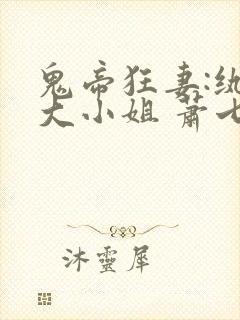 鬼帝狂妻:
大小姐 蕭七
沐靈犀